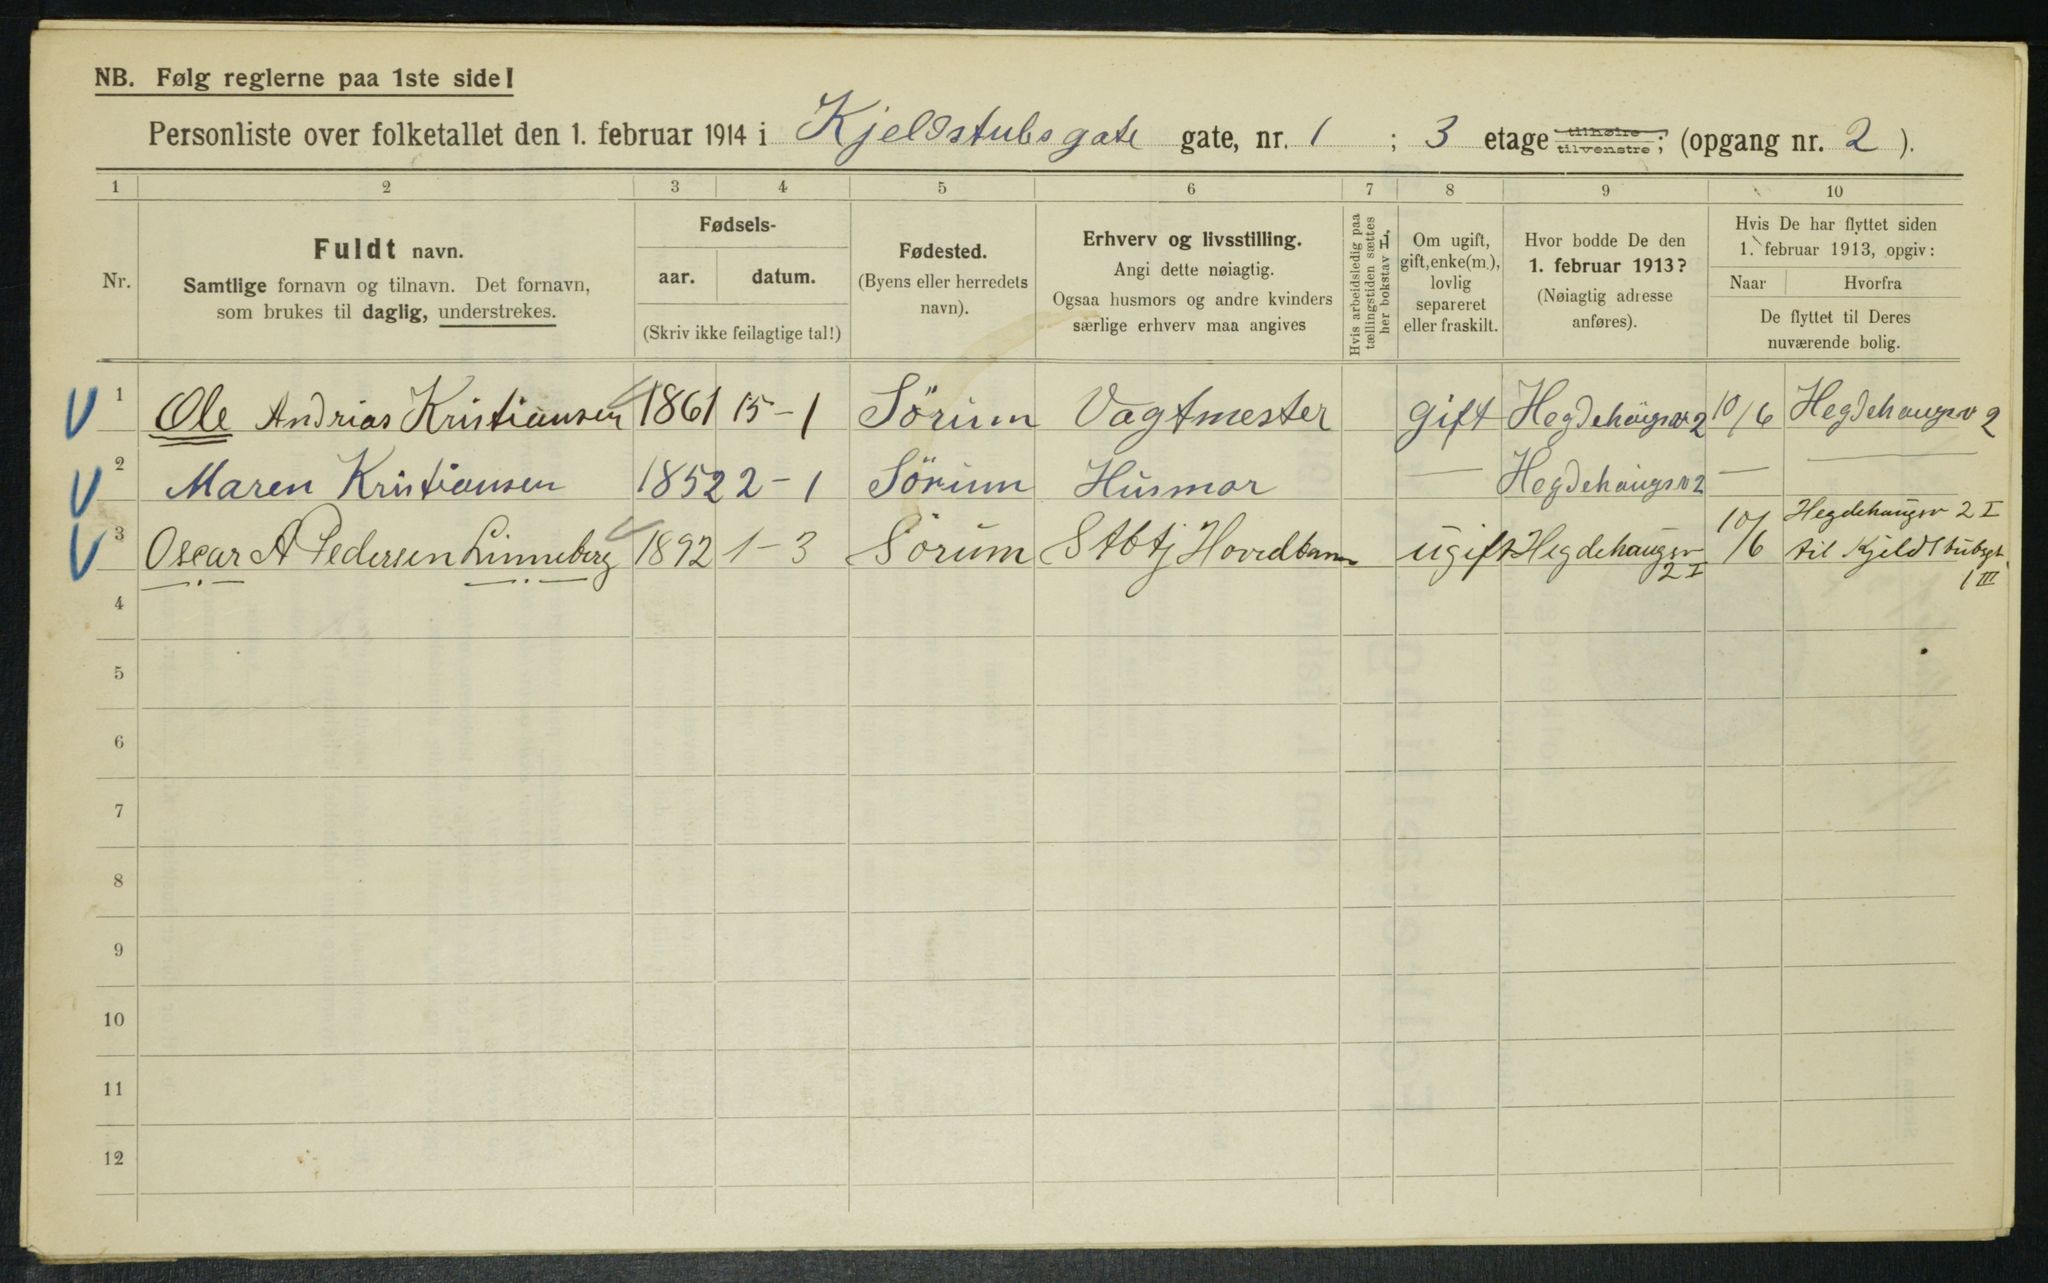 NB. Følg reglerne paa 1ste side!
Personliste over folketallet den 1. februar 1914 i Kjeldstubsgate gate, nr. 1 ; 3 etage tilhøire tilvenstre; (opgang nr. 2 ).
1 2 3 4 5 6 7 8 9 10
Nr.
Fuldt navn.
Samtlige fornavn og tilnavn. Det fornavn,
som brukes til daglig, understrekes.
Fødsels-
aar. datum.
(Skriv ikke feilagtige tal!)
Fødested.
(Byens eller herredets
navn).
Erhverv og livsstilling.
Angi dette nøiagtig.
Ogsaa husmors og andre kvinders
særlige erhverv maa angives
Hvis arbeidsledig paa
tællingstiden sættes
her bokstav L.
Om ugift,
gift, enke(m.),
lovlig
separeret
eller fraskilt.
Hvor bodde De den
1. februar 1913?
(Nøiagtig adresse
anføres).
Hvis De har flyttet siden
1. februar 1913, opgiv:
Naar Hvorfra
De flyttet til Deres
nuværende bolig.
1 Ole Andrias Kristiansen 1861 15-1 Sörium Vagtmester gift Hegdehaugsv 2 10/6 Hegdehaugsv 2
2 Maren Kristiansen 1852 2-1 Sörium Husmor — Hegdehaugsv 2 — —
3 Oscar A Pedersen Linneberg 1892 1-3 Sörum Stbtj Hovedban ugift Hegdehaugsv 2 I 10/6 Hegdehaugsv 2 I
til Kjeldstubgt
1 III
4
5
6
7
8
9
10
11
12